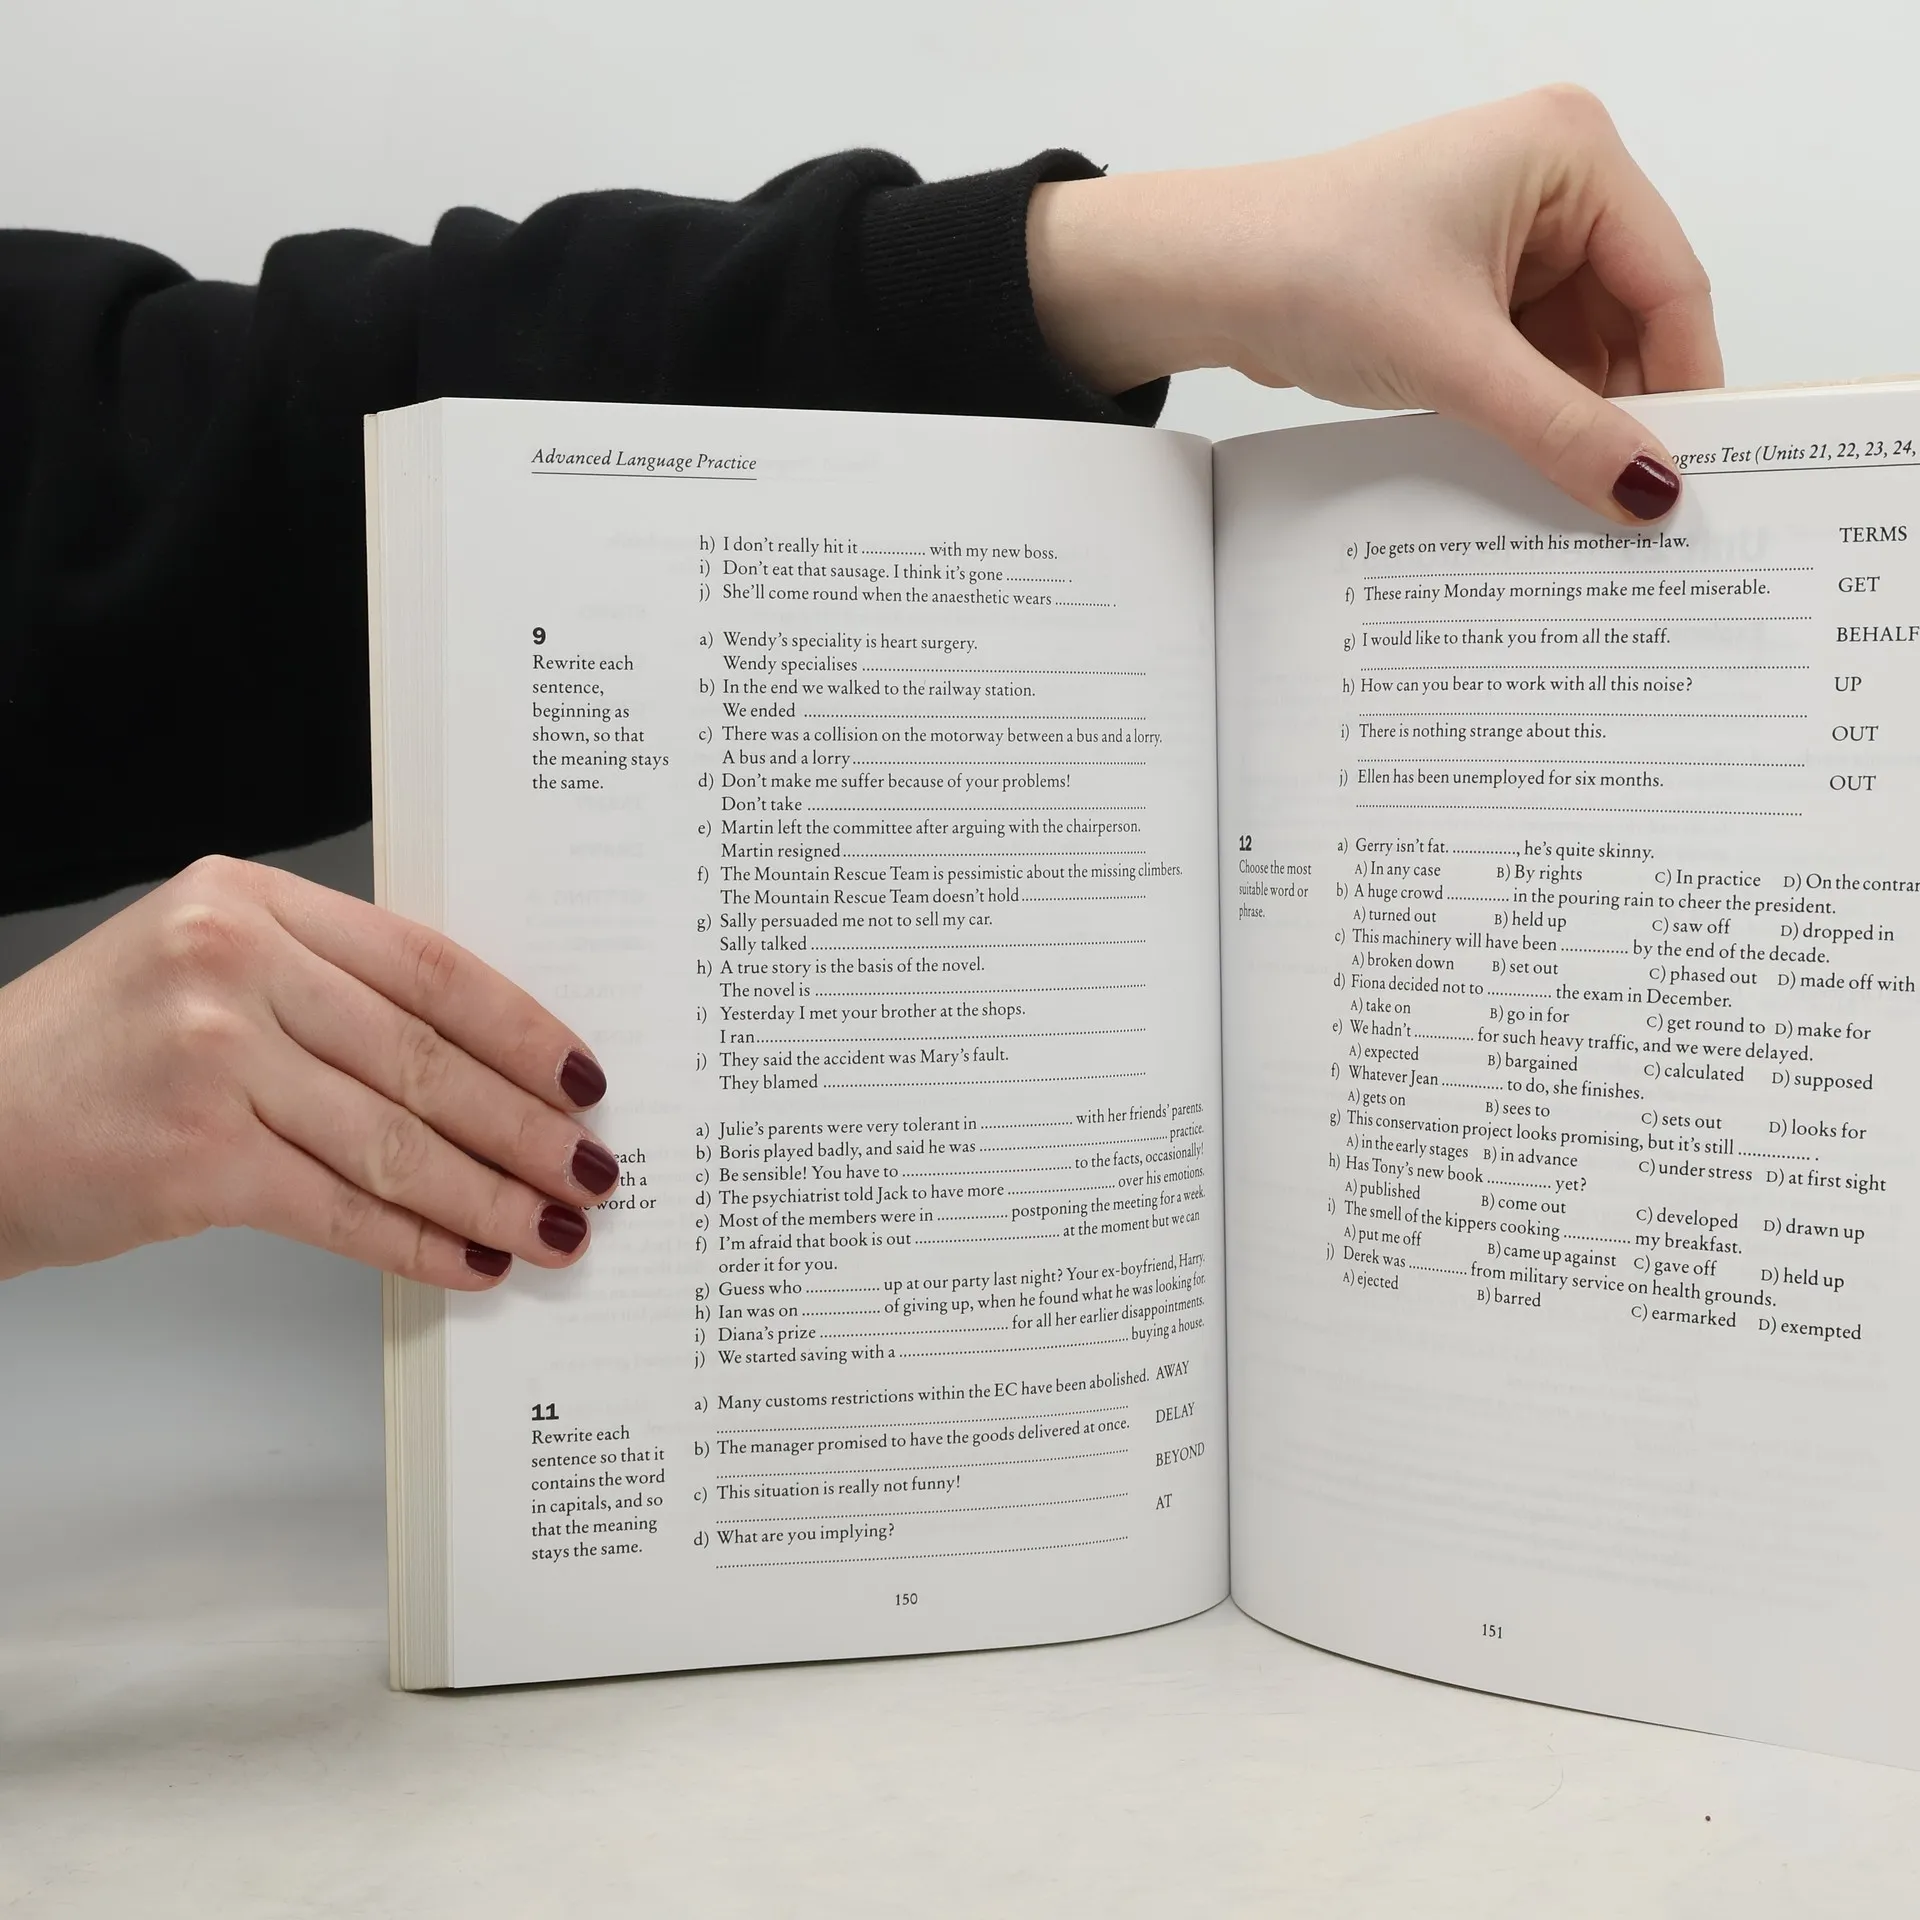 Advanced Language Practice
h) I don't really hit it .............. with my new boss.
i) Don't eat that sausage. I think it's gone .............. .
j) She'll come round when the anaesthetic wears .............. .
9
Rewrite each
sentence,
beginning as
shown, so that
the meaning stays
the same.
a) Wendy's speciality is heart surgery.
Wendy specialises ..............
b) In the end we walked to the railway station.
We ended ..............
c) There was a collision on the motorway between a bus and a lorry.
A bus and a lorry ..............
d) Don't make me suffer because of your problems!
Don't take ..............
e) Martin left the committee after arguing with the chairperson.
Martin resigned ..............
f) The Mountain Rescue Team is pessimistic about the missing climbers.
The Mountain Rescue Team doesn't hold ..............
g) Sally persuaded me not to sell my car.
Sally talked ..............
h) A true story is the basis of the novel.
The novel is ..............
i) Yesterday I met your brother at the shops.
I ran ..............
j) They said the accident was Mary's fault.
They blamed ..............
each
a
word or
a) Julie's parents were very tolerant in .............. with her friends' parents.
b) Boris played badly, and said he was .............. practice.
c) Be sensible! You have to .............. to the facts, occasionally!
d) The psychiatrist told Jack to have more .............. over his emotions.
e) Most of the members were in .............. postponing the meeting for a week.
f) I'm afraid that book is out .............. at the moment but we can
order it for you.
g) Guess who .............. up at our party last night? Your ex-boyfriend, Harry.
h) Ian was on .............. of giving up, when he found what he was looking for.
i) Diana's prize .............. for all her earlier disappointments.
j) We started saving with a .............. buying a house.
11
Rewrite each
sentence so that it
contains the word
in capitals, and so
that the meaning
stays the same.
a) Many customs restrictions within the EC have been abolished. AWAY
..............
b) The manager promised to have the goods delivered at once. DELAY
..............
c) This situation is really not funny! BEYOND
..............
d) What are you implying? AT
..............
150
Test (Units 21, 22, 23, 24,
e) Joe gets on very well with his mother-in-law. TERMS
..............
f) These rainy Monday mornings make me feel miserable. GET
..............
g) I would like to thank you from all the staff. BEHALF
..............
h) How can you bear to work with all this noise? UP
..............
i) There is nothing strange about this. OUT
..............
j) Ellen has been unemployed for six months. OUT
..............
12
Choose the most
suitable word or
phrase.
a) Gerry isn't fat. .............., he's quite skinny.
A) In any case B) By rights C) In practice D) On the
b) A huge crowd .............. in the pouring rain to cheer the president.
A) turned out B) held up C) saw off D) dropped in
c) This machinery will have been .............. by the end of the decade.
A) broken down B) set out C) phased out D) made off with
d) Fiona decided not to .............. the exam in December.
A) take on B) go in for C) get round to D) make for
e) We hadn't .............. for such heavy traffic, and we were delayed.
A) expected B) bargained C) calculated D) supposed
f) Whatever Jean .............. to do, she finishes.
A) gets on B) sees to C) sets out D) looks for
g) This conservation project looks promising, but it's still .............. .
A) in the early stages B) in advance C) under stress D) at first sight
h) Has Tony's new book .............. yet?
A) published B) come out C) developed D) drawn up
i) The smell of the kippers cooking .............. my breakfast.
A) put me off B) came up against C) gave off D) held up
j) Derek was .............. from military service on health grounds.
A) ejected B) barred C) earmarked D) exempted
151